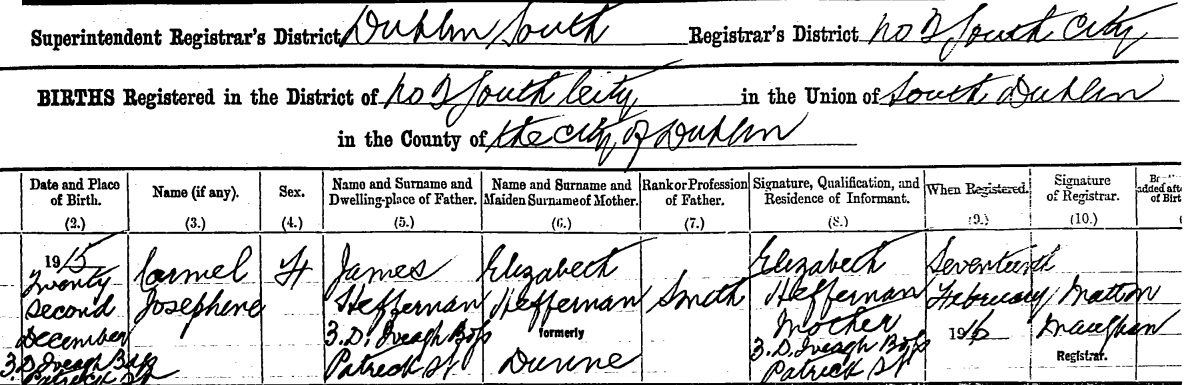 Superintendent Registrar's District Dublin South Registrar's District No 2 South City
BIRTHS Registered in the District of No 2 South City in the Union of South Dublin
in the County of the City of Dublin
Date and Place of Birth. Name (if any). Sex. Name and Surname and Dwelling-place of Father. Name and Surname and Maiden Surname of Mother. Rank or Profession of Father. Signature, Qualification, and Residence of Informant. When Registered. Signature of Registrar. added after of Birth
(2.) (3.) (4.) (5.) (6.) (7.) (8.) (9.) (10.)
1915 Carmel F James Elizabeth Elizabeth Seventeenth
Twenty Second Josephene Heffernan Heffernan Smith Heffernan February
December 3.D. Iveagh Bdgs formerly Mother 1916 Maughan
3.D Iveagh Bdgs Patrick St Dunne 3.D. Iveagh Bdgs Registrar.
Patrick St Patrick St